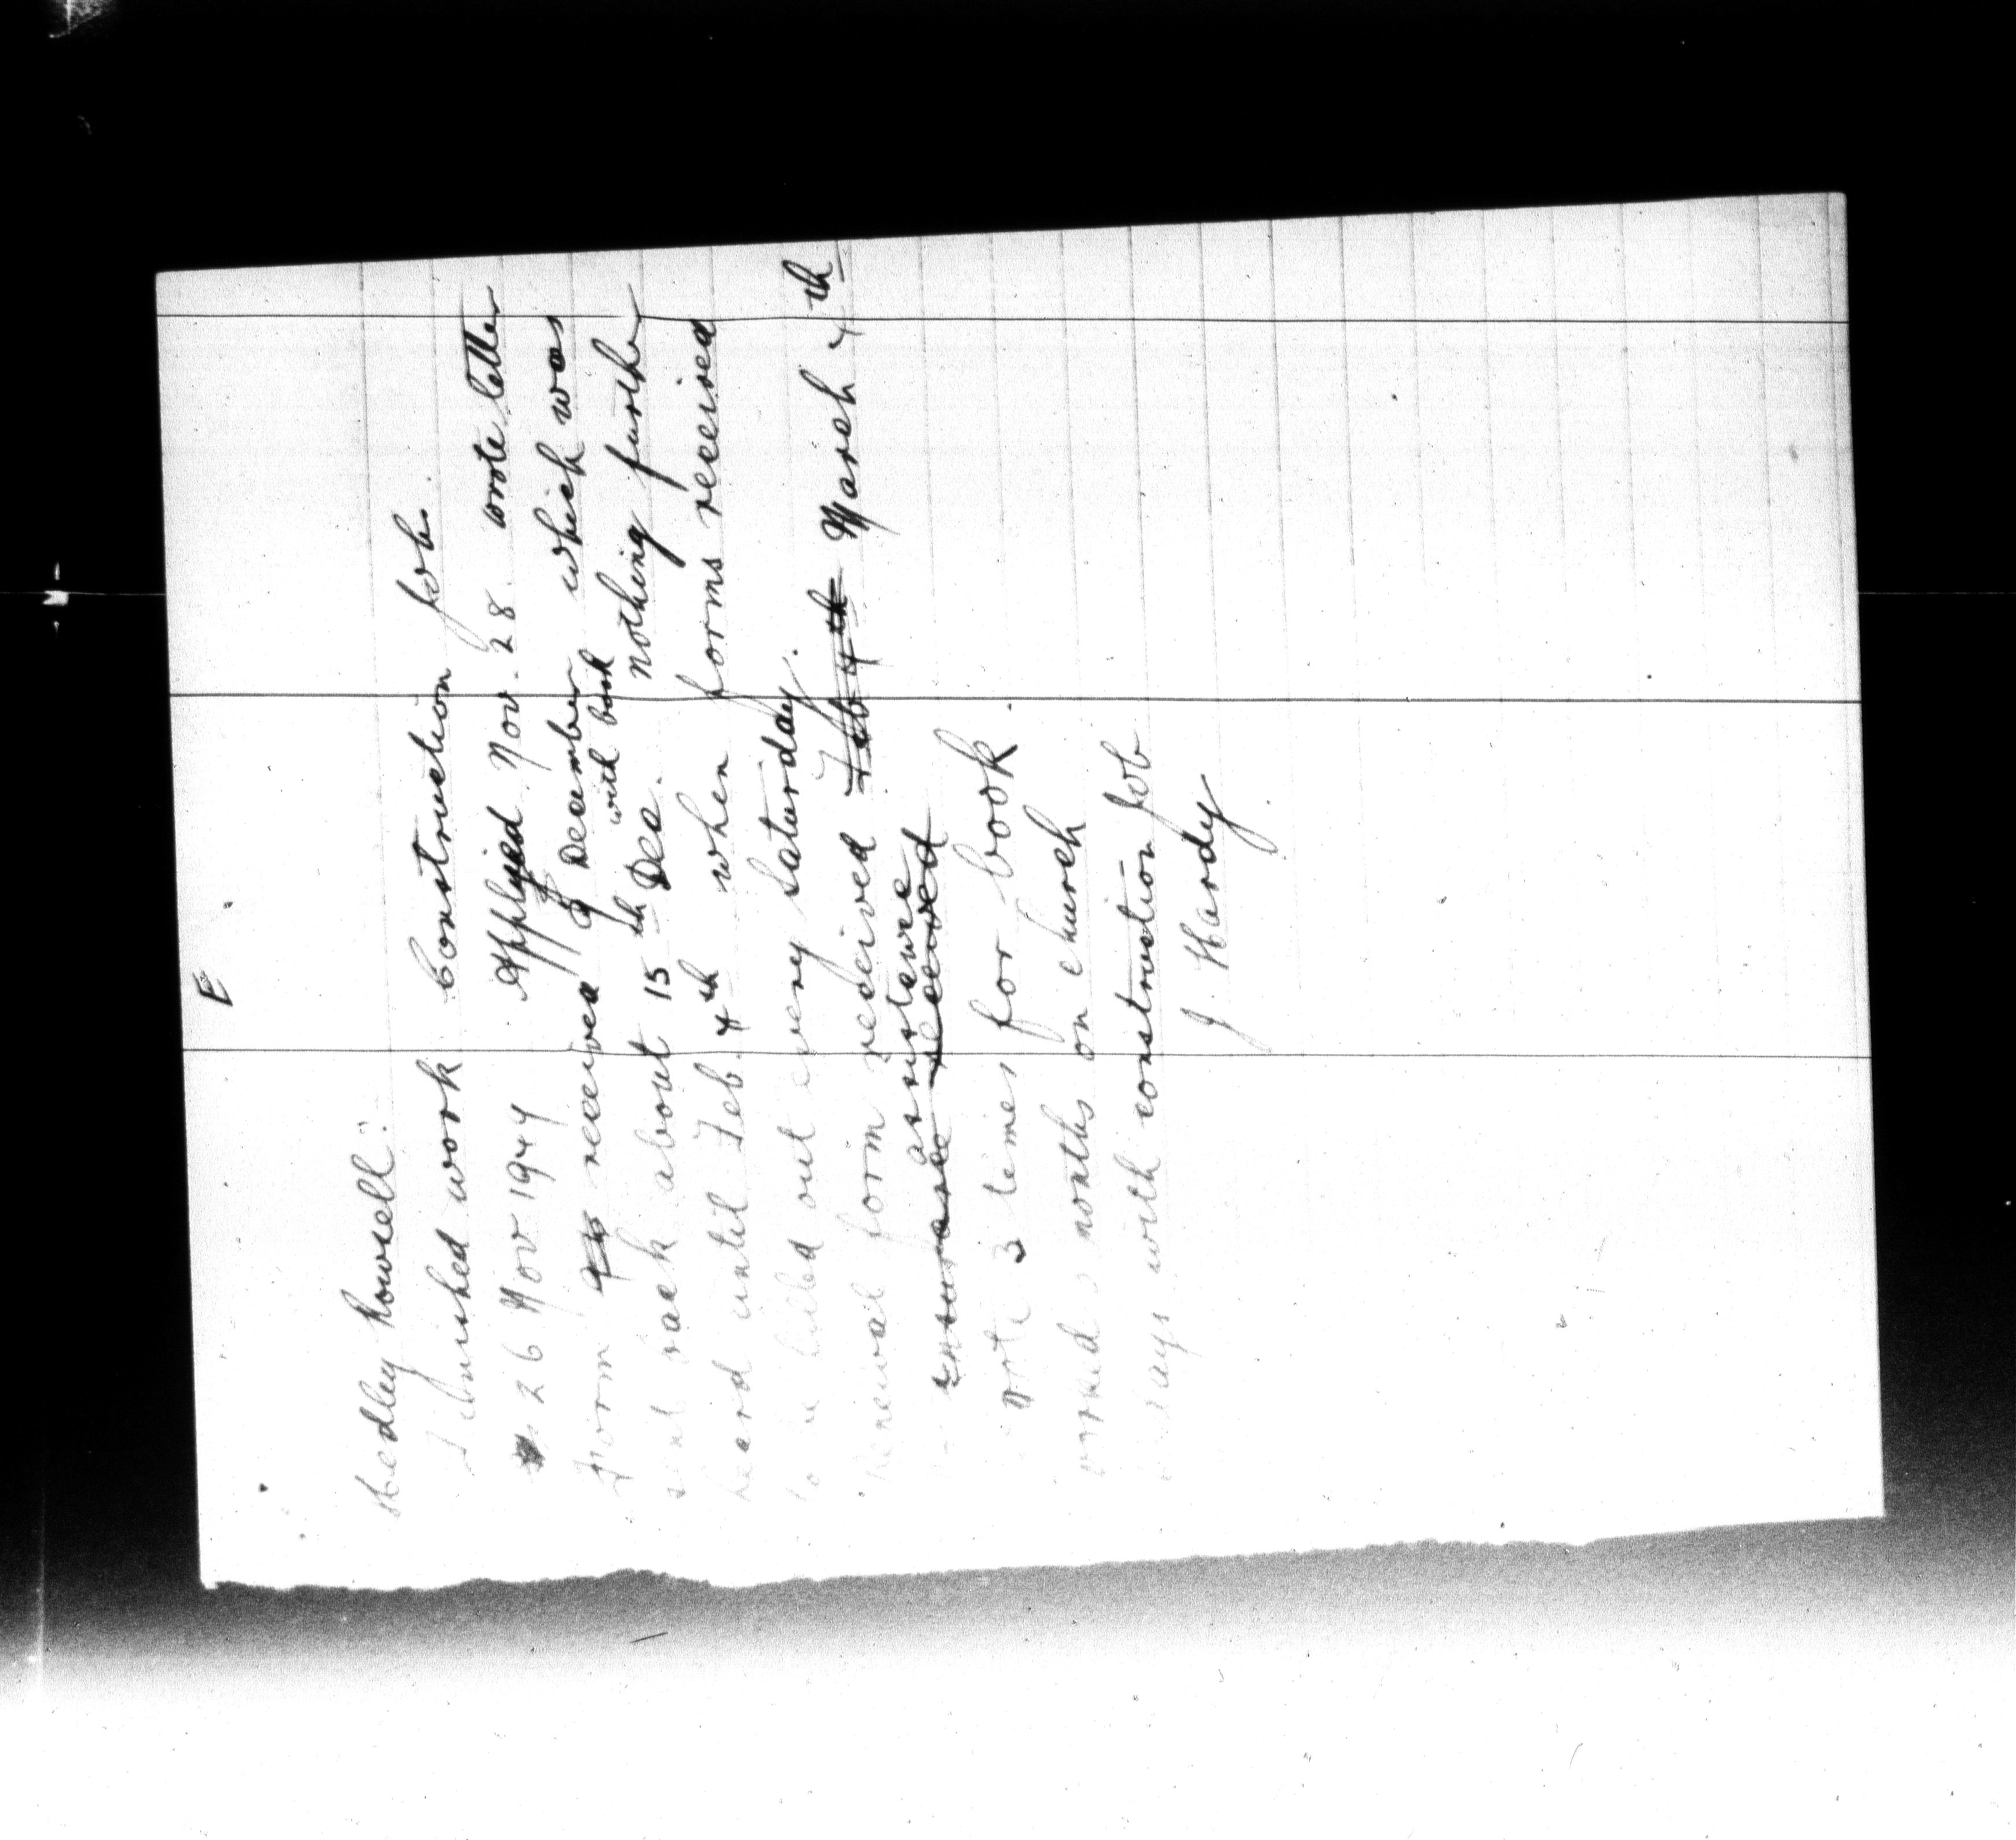 E
Hedley Howell:
Finished work Construction Job.
26 Nov 1944 Applyied Nov. 28 wrote letter
Form received 9 December which was
with book
sent back about 15th Dec. nothing further
heard until Feb. 4th when forms received
to be filled out every Saturday.
Renewal form received Feb 4th March 4th
assistance
insurance received
wrote 3 times for book
worked months on church
days with construction Job
J. Hardy